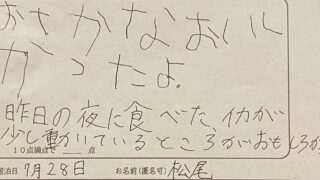 おさかなおいし
かったよ。
昨日の夜に食べた、イカが
少し動いているところがおもしろか
10点満点で＿＿点
宿泊日 7月28日 お名前(匿名可) 松尾